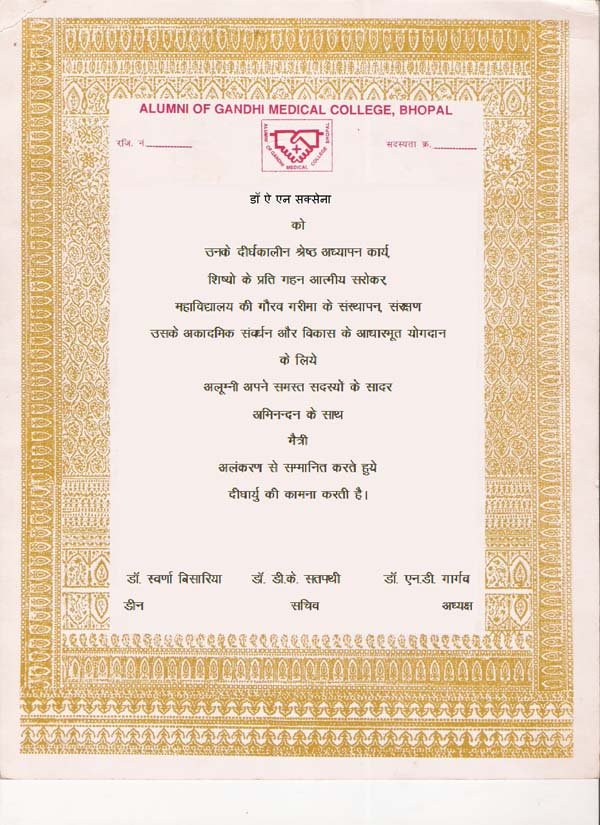 ALUMNI OF GANDHI MEDICAL COLLEGE, BHOPAL
ALUMNI OF GANDHI MEDICAL COLLEGE BHOPAL
रजि. नं.
सदस्यता क्र.
डॉ ऐ एन सक्सेना
को
उनके दीर्घकालीन श्रेष्ठ अध्यापन कार्य,
शिष्यो के प्रति गहन आत्मीय सरोकर,
महाविद्यालय की गौरव गरीमा के संस्थापन, संरक्षण
उसके अकादमिक संवर्धन और विकास के आधारमूत योगदान
के लिये
अलूम्नी अपने समस्त सदस्यों के सादर
अमिनन्दन के साथ
मैत्री
अलंकरण से सम्मानित करते हुये
दीघार्यु की कामना करती है।
डॉ. स्वर्णा बिसारिया डॉ. डी.के. सतपथी डॉ. एन.डी. गार्गव
डीन सचिव अध्यक्ष